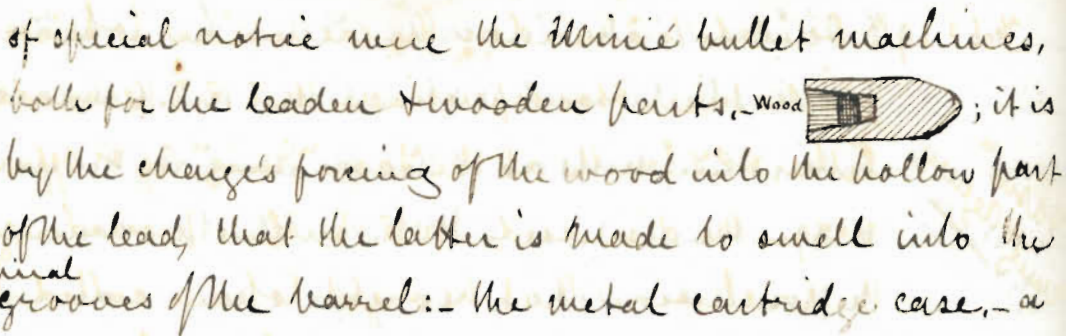 of special notice were the Minié bullet machines,
both for the leaden & wooden parts,- Wood ; it is
by the charge's forcing of the wood into the hollow part
of the lead, that the latter is made to swell into the
grooves of the barrel:- the metal cartridge case,- a